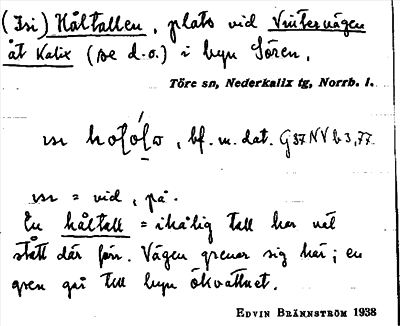 (Isi) Håltallen, plats vid Vintervägen
åt Kalix (se d.o.) i byn Sören.
Töre sn, Nederkalix tg, Norrb. l.
bf. m. dat. G 37 NV b 3,77.
= vid, på.
En håltall = ihålig tall har väl
stått där förr. Vägen grenar sig här; en
gren går till byn Ökvattnet.
EDVIN BRÄNNSTRÖM 1938